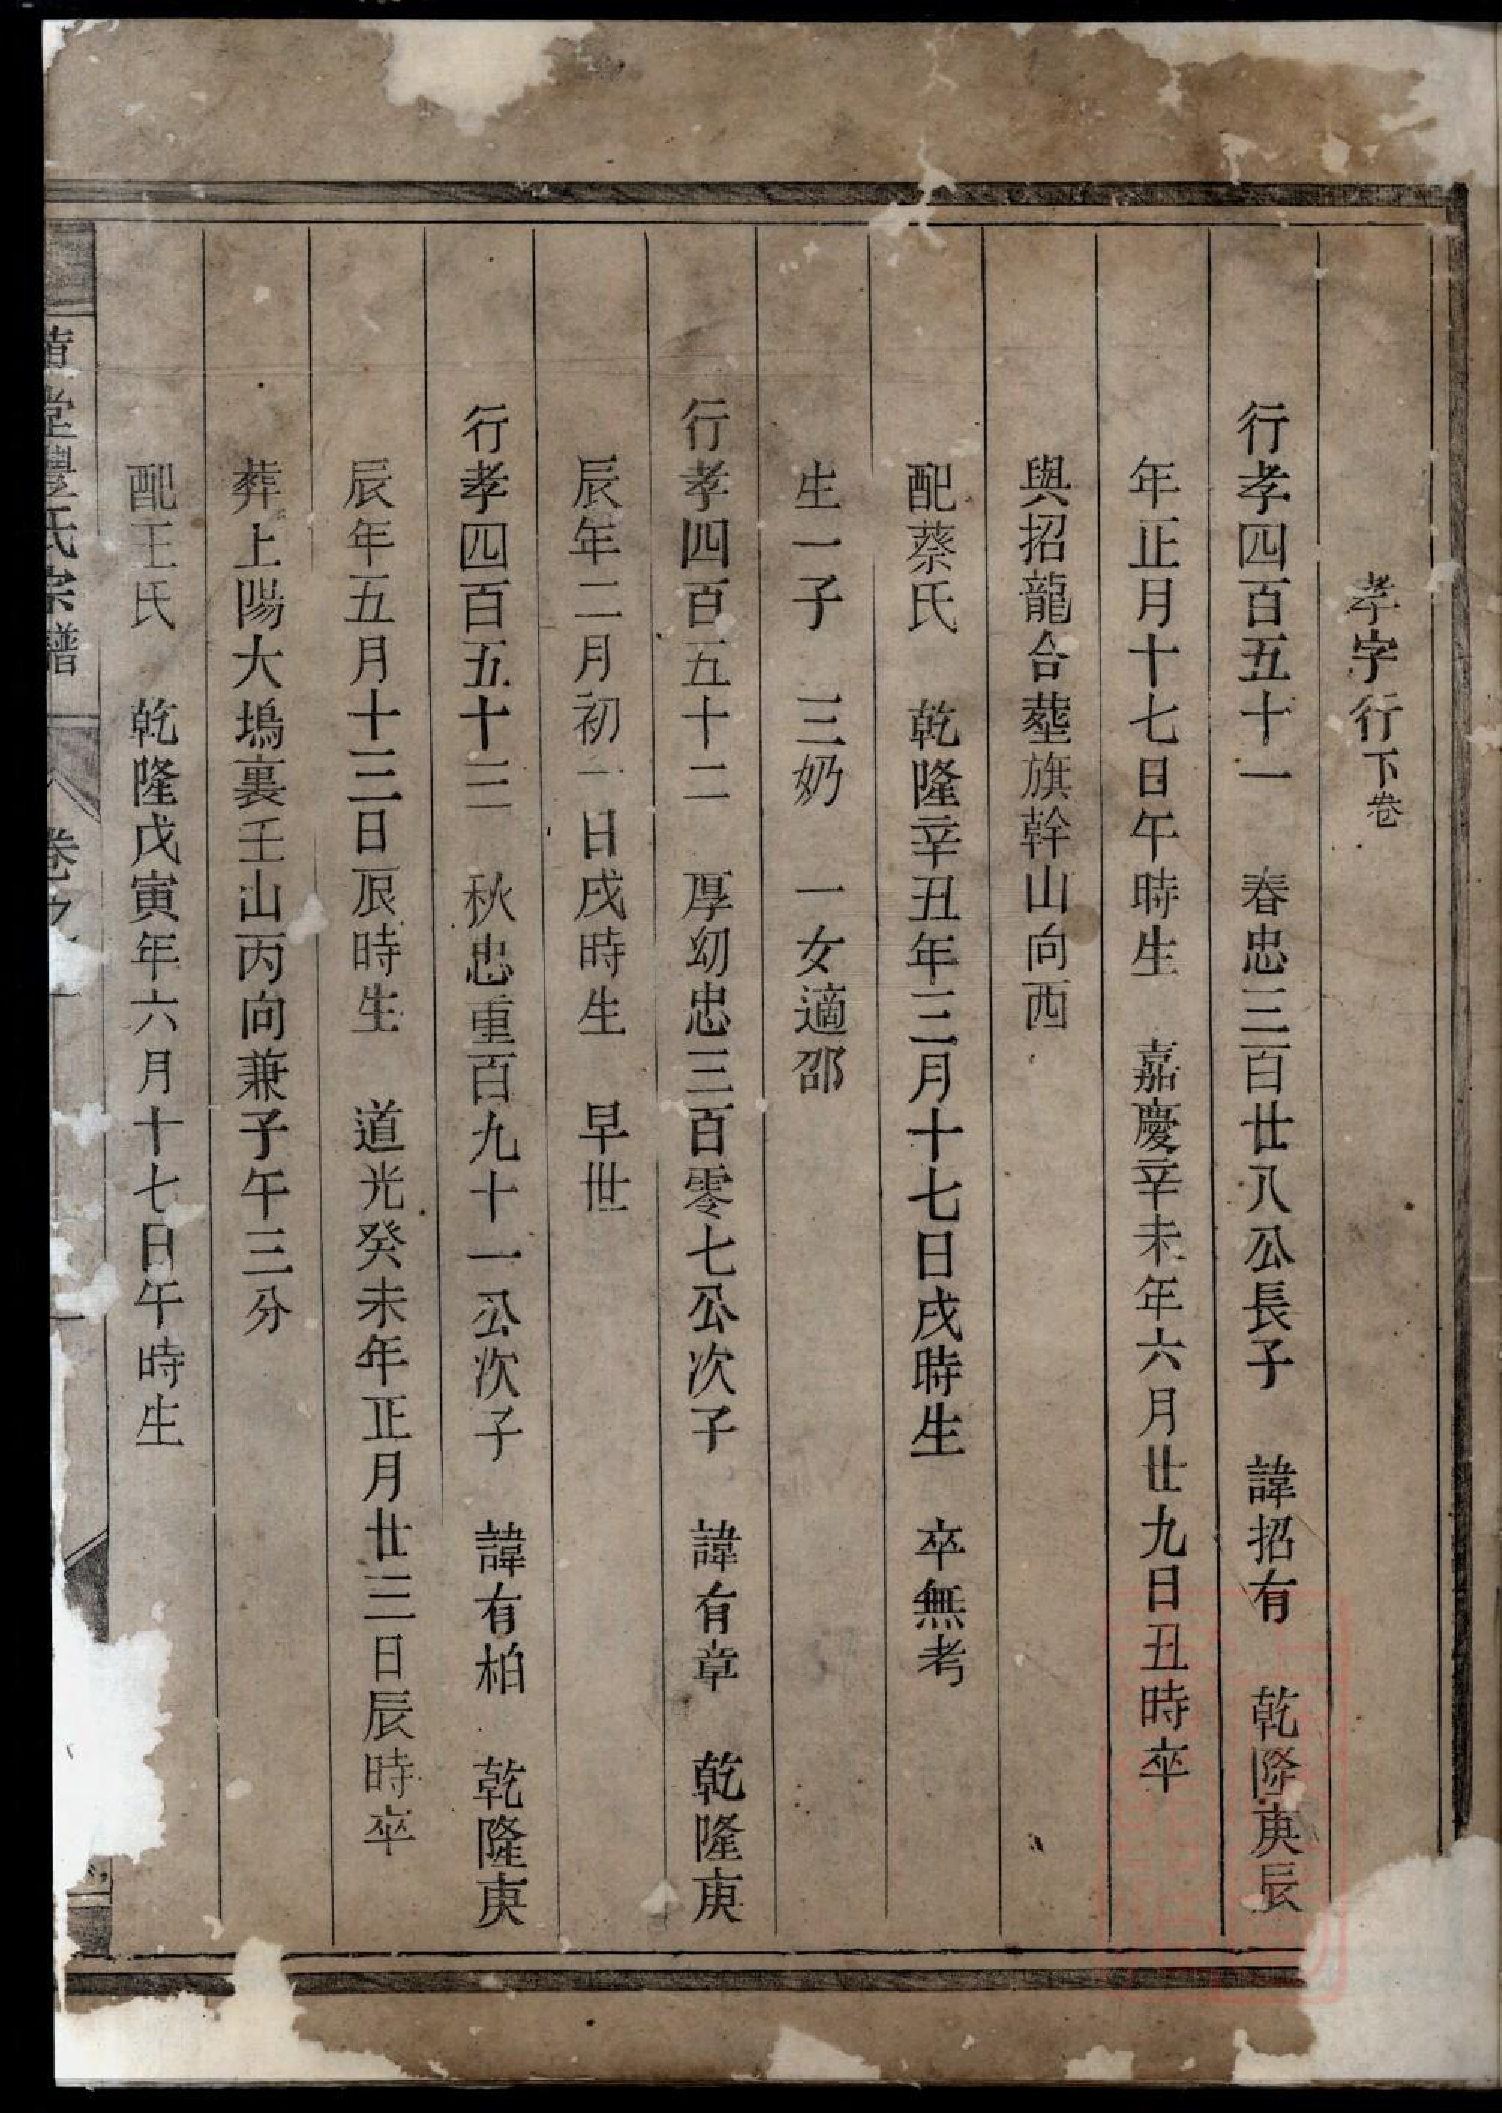 孝字行下卷
行孝四百五十一　春忠三百廿八公長子　諱招有　乾隆庚辰
年正月十七日午時生　嘉慶辛未年六月廿九日丑時卒
與招龍合塟旗幹山向西
配蔡氏　乾隆辛丑年三月十七日戌時生　卒無考
生一子　三奶　一女適邵
行孝四百五十二　厚幼忠三百零七公次子　諱有章　乾隆庚
辰年二月初一日戌時生　早世
行孝四百五十三　秋忠重百九十一公次子　諱有柏　乾隆庚
辰年五月十三日辰時生　道光癸未年正月廿三日辰時卒
葬上陽大塢裏壬山丙向兼子午三分
配王氏　乾隆戊寅年六月十七日午時生
堂豐氏宗譜　卷之